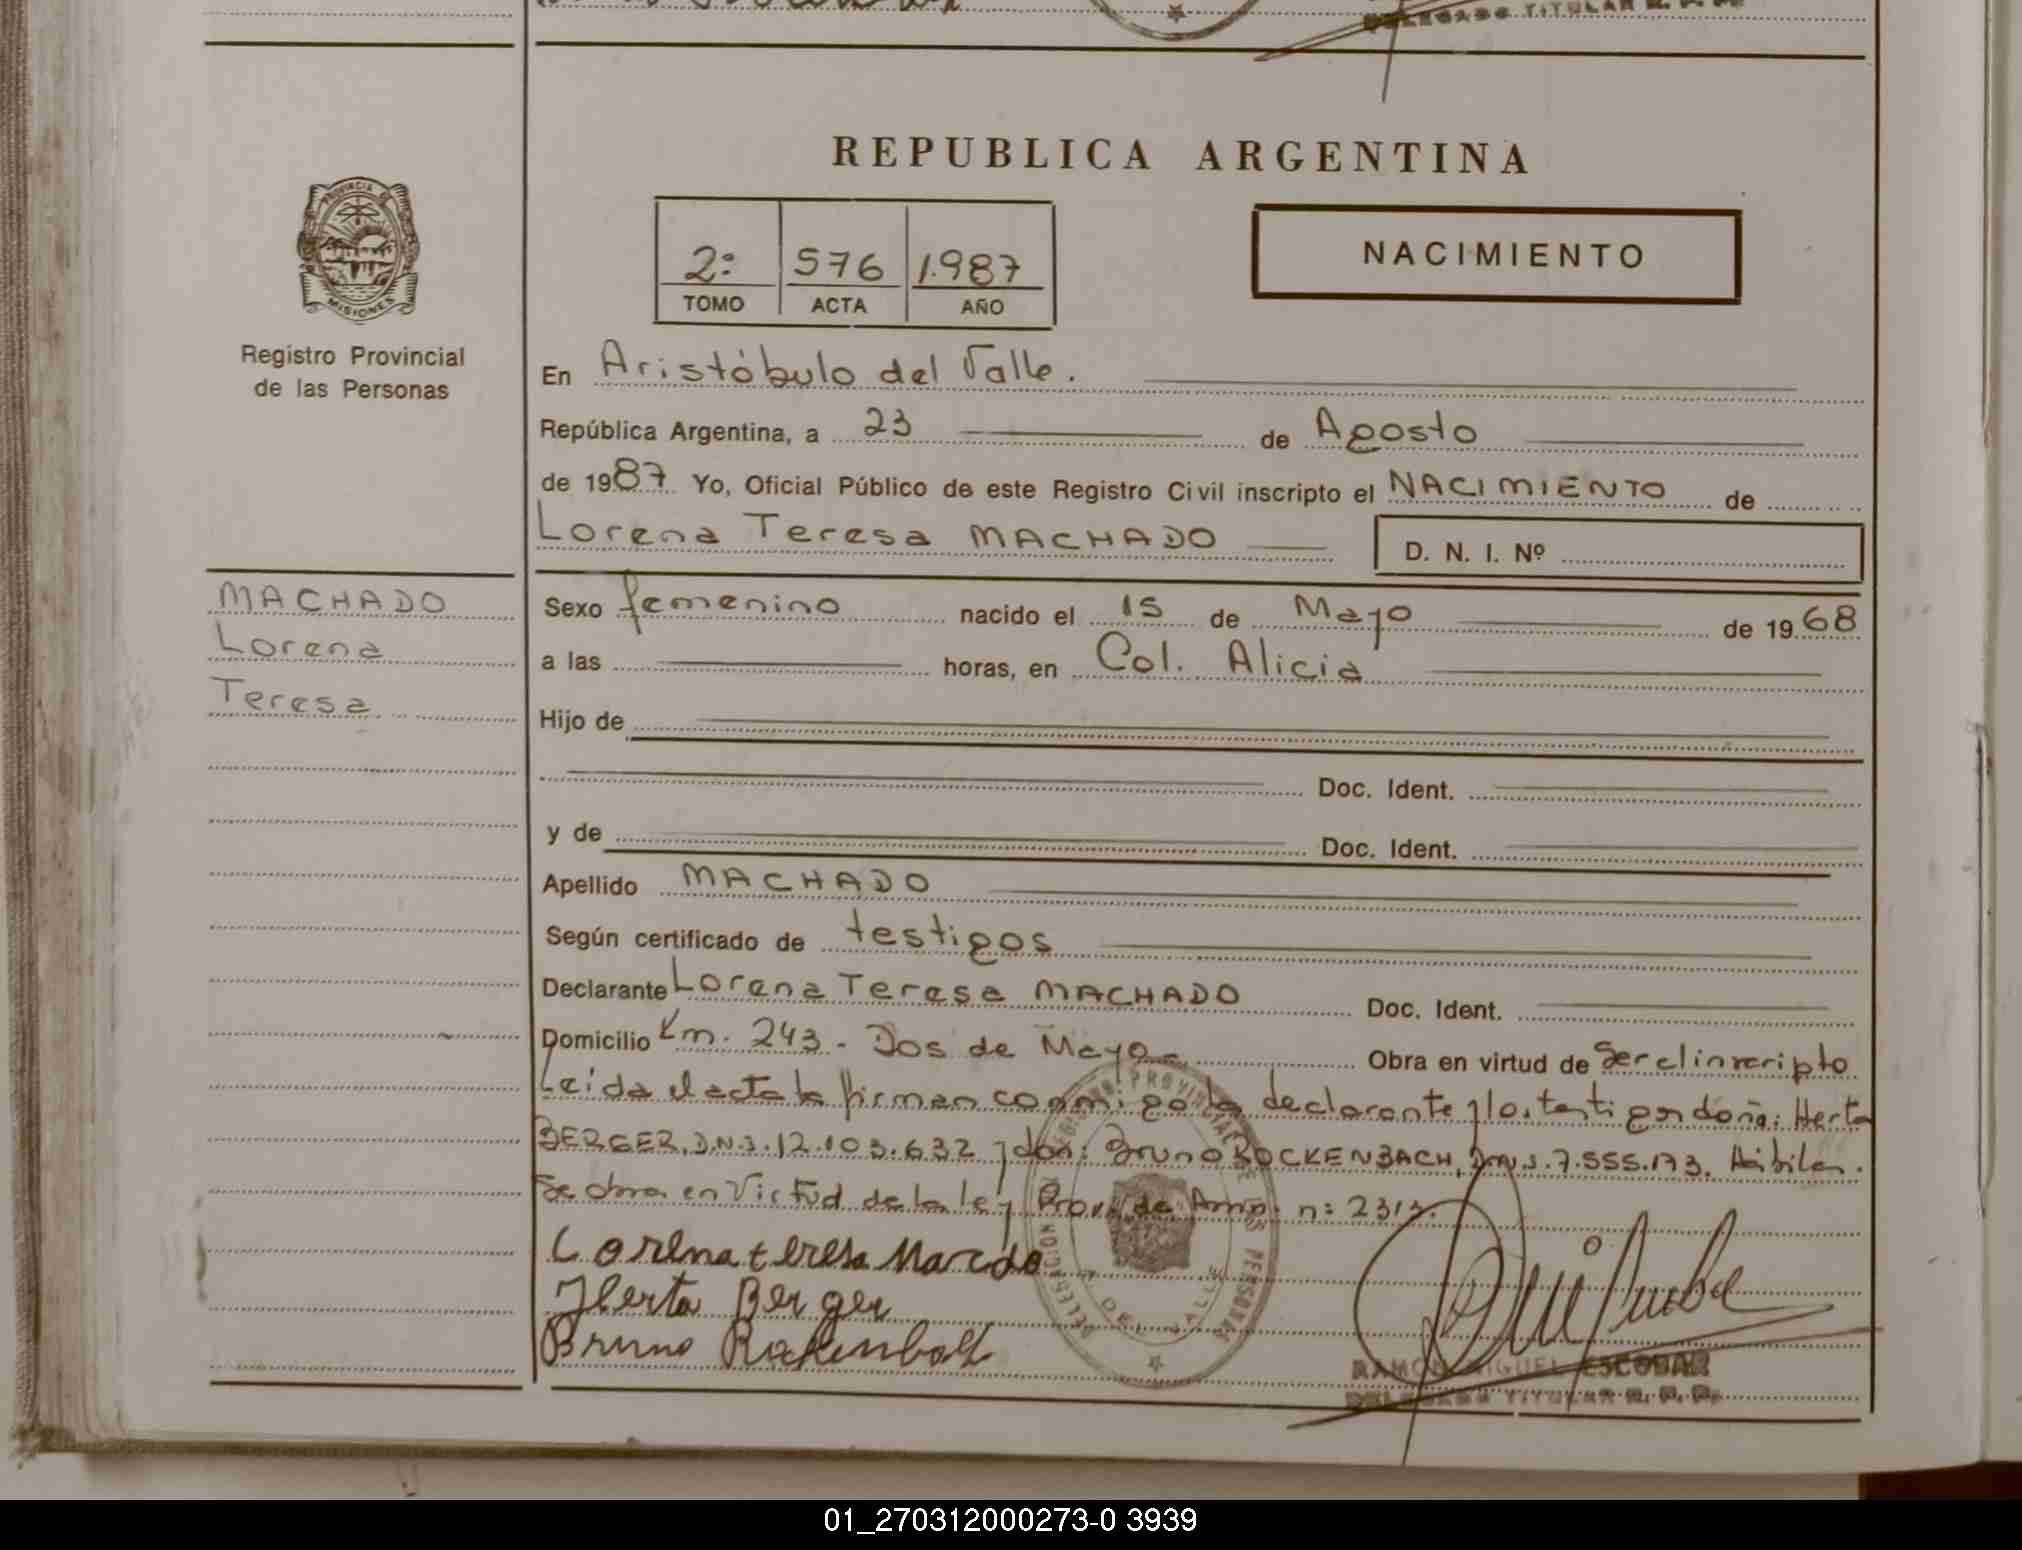 DELEGADO TITULAR R. P. P.
REPUBLICA ARGENTINA
PROVINCIA DE
MISIONES
Registro Provincial
de las Personas
2: 576 1.987
TOMO ACTA AÑO
NACIMIENTO
En Aristóbulo del Valle.
República Argentina, a 23 de Agosto
de 1987 Yo, Oficial Público de este Registro Civil inscripto el NACIMIENTO de
Lorena Teresa MACHADO D. N. I. Nº
MACHADO
Lorena
Teresa
Sexo femenino nacido el 15 de Mayo de 1968
a las horas, en Col. Alicia
Hijo de
Doc. Ident.
y de Doc. Ident.
Apellido MACHADO
Según certificado de testigos
Declarante Lorena Teresa MACHADO Doc. Ident.
Domicilio Km. 243 - Dos de Mayo - Obra en virtud de Ser el inscripto
Leída el acta la firman conmigo la declarante y los testigos doña: Herta
BERGER, D.N.I. 12.103.632 y don: Bruno ROCKENBACH, D.N.I. 7.555.173. Hábiles.
Se obra en Virtud de la ley Prov. de Amp. n:
Lorena teresa Marcdo
Herta Berger
Bruno
RAMON MIGUEL ESCOBAR
DELEGADO TITULAR R. P. P.
01_270312000273-0 3939